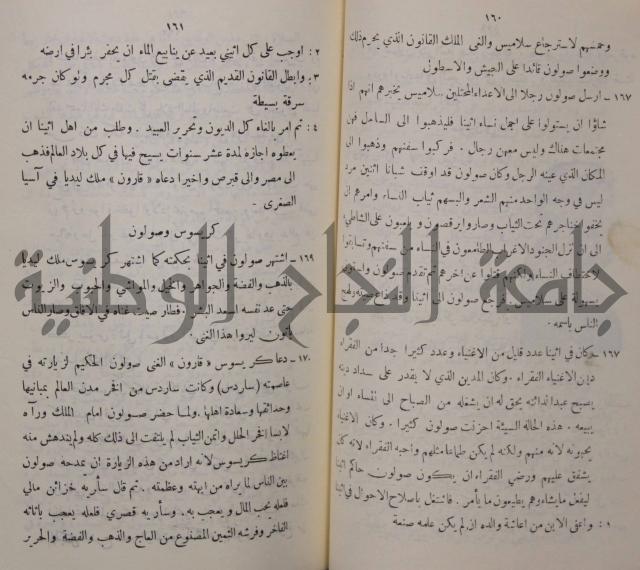 ١٦٠
وحمسهم لاسترجاع سلاميس والغى الملك القانون الذي يحرم ذلك
ووضعوا صولون قائدا على الجيش والاسطول
١٦٧ - ارسل صولون رجلا الى الاعداء المحتلين سلاميس يخبرهم انهم اذا
شاؤا ان يستولوا على اجمل نساء اثينا فليذهبوا الى الساحل فهن
مجتمعات هناك وليس معهن رجال . فركبوا سفنهم وذهبوا الى
المكان الذي عينه الرجل وكان صولون قد اوقف شبانا اثنين مرد
ليس في وجه الواحد منهم الشعر والبسهم ثياب النساء وامرهم ان
يخفوا خناجرهم تحت الثياب وصاروا يرقصون ويلعبون على الشاطئ
الى ان نزل الجنود الاغراب الطامعون في النساء من سفنهم وتسابقوا
لاختطاف النساء ولكنهم قتلوا عن اخرهم ثم تقدم صولون واستولى
بسهولة على سلاميس ورجع صولون الى اثينا وقد ذاع صيته ولهج
الناس باسمه .
١٦٧ - كان في اثينا عدد قليل من الاغنياء وعدد كثير جدا من الفقراء
دان الاغنياء الفقراء . وكان المدين الذي لا يقدر على سداد دينه
يصبح عبدا لدائنه يحق له ان يشغله من الصباح الى المساء او ان
يبيعه . هذه الحالة السيئة احزنت صولون كثيرا . وكان الاغنياء
يحبونه لانه منهم ولكنه لم يكن طماعا مثلهم واحبه الفقراء لانه كان
يشفق عليهم ورضي الفقراء ان يكون صولون حاكم اثينا
ليفعل ما يشاء وهم يطيعون ما يأمر . فاشتغل باصلاح الاحوال في اثينا
١ : واعفى الابن من اعاشة والده ان لم يكن علمه صنعة
١٦١
٢ : اوجب على كل اثيني بعيد عن ينابيع الماء ان يحفر بئرا في ارضه
٣ : وابطل القانون القديم الذي يقضى بقتل كل مجرم ولو كان جرمه
سرقة بسيطة
٤ : ثم امر بالغاء كل الديون وتحرير العبيد . وطلب من اهل اثينا ان
يعطوه اجازه لمدة عشر سنوات يسيح فيها في كل بلاد العالم فذهب
الى مصر والى قبرص واخيرا دعاه « قارون » ملك ليديا في آسيا
الصغرى .
كريسوس وصولون
١٦٩ - اشتهر صولون في اثينا بحكمته كما اشتهر كريسوس ملك ليديا
بالذهب والفضة والجواهر والخيل والمواشي والحبوب والزيوت
حتى عد نفسه اسعد البشر . فطار صيت غناه في الافاق وصار الناس
يأتون ليروا هذا الغنى .
١٧٠ - دعا كريسوس « قارون » الغنى صولون الحكيم لزيارته في
عاصمته ( ساردس ) وكانت ساردس من افخر مدن العالم بمبانيها
وحدائقها وسعادة اهلها . ولما حضر صولون امام الملك ورآه
لابسا افخر الحلل واثمن الثياب لم يلتفت الى ذلك كله ولم يندهش منه
اغتاظ كريسوس لانه اراد من هذه الزيارة ان يمدحه صولون
بين الناس لما يراه من ابهته وعظمته . ثم قال سأريه خزائن مالي
فلعله يحب المال ويعجب به . وسأريه قصري فلعله يعجب باثاثه
الفاخر وفرشه الثمين المصنوع من العاج والذهب والفضة والحرير
جامعة النجاح الوطنية